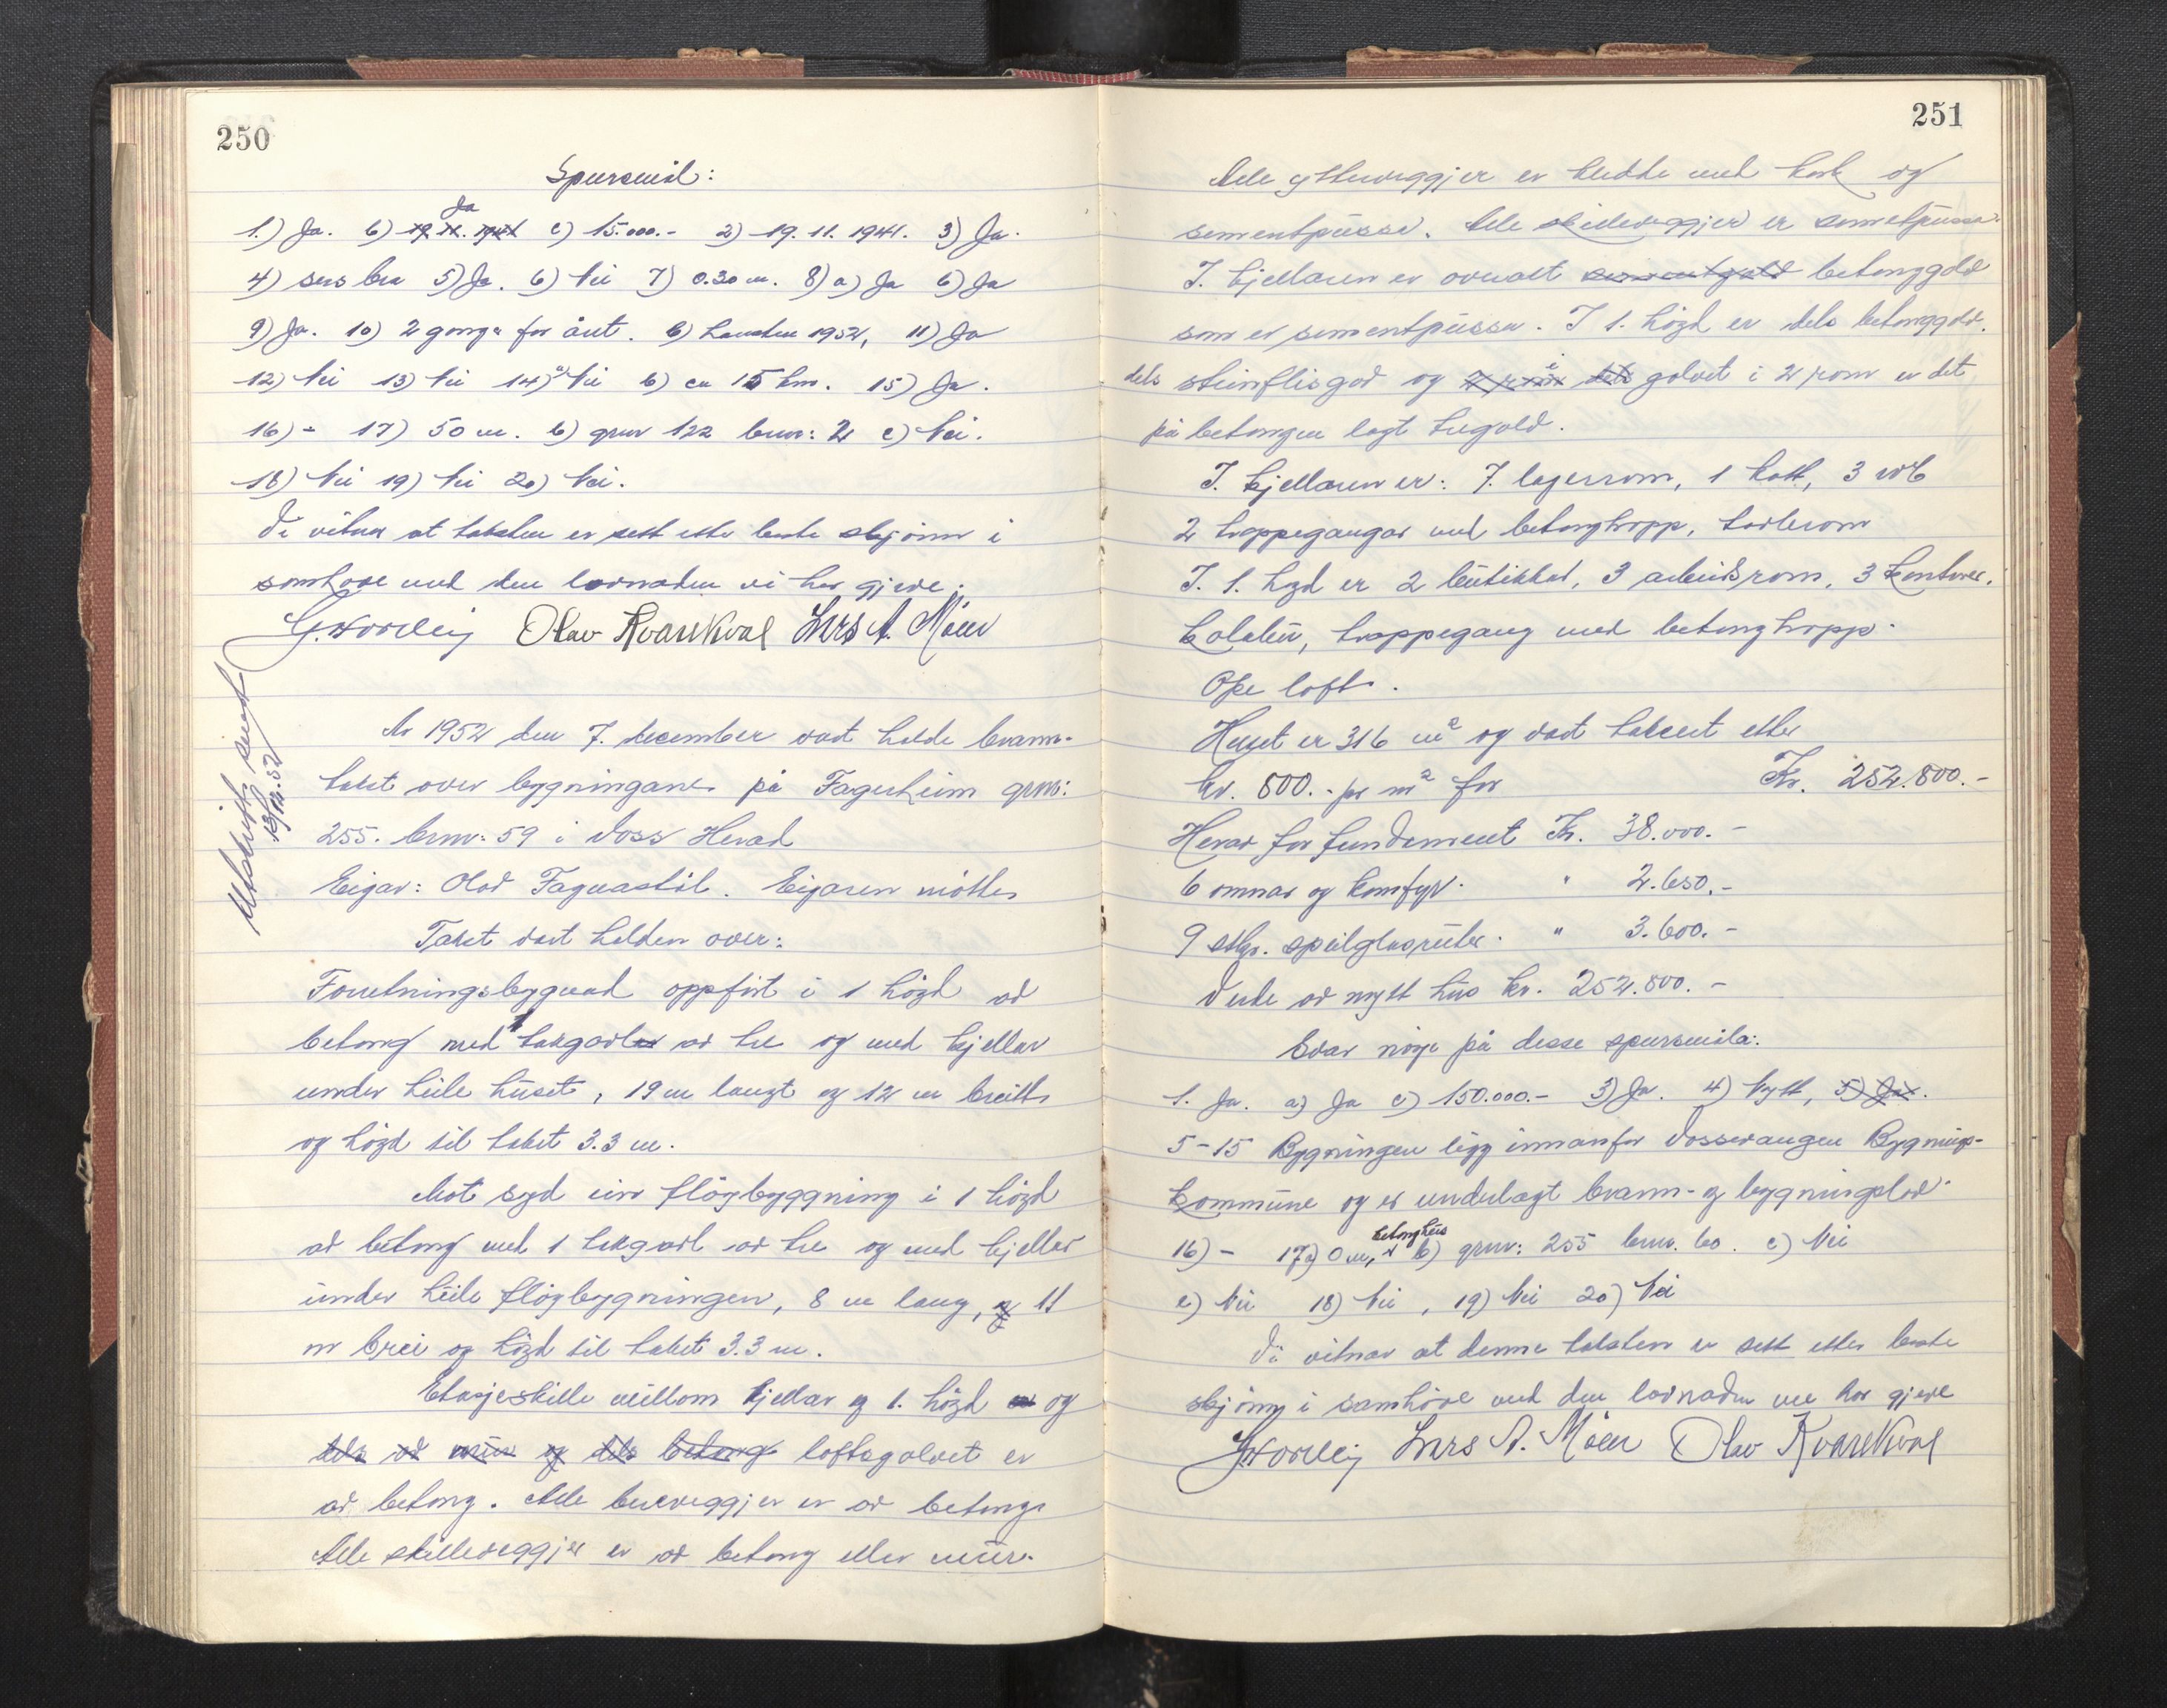 250
Spursmål:
Ja
1.) Ja. b) 19. 11. 1941 c) 15.000.- 2) 19. 11. 1941. 3) Ja.
4) sers bra 5) Ja. 6) Nei 7) 0.30 m. 8) a) Ja b) Ja
9) Ja. 10) 2 gonger for året. b) hausten 1952, 11) Ja
12) Nei 13) Nei 14) a) Nei b) ca 15 km. 15) Ja.
16) - 17) 50 m. b) grnr 122 brnr: 2 c) Nei.
18) Nei 19) Nei 20) Nei.
Vi vitnar at taksten er sett etter beste skjønn i
samhøve med den lovnaden vi har gjeve.
Olav Kvarekval Lars A. Møen
Utskrift sendt
13/12-52
År 1952 den 7. desember vart halde brann-
takst over bygningane på Fagerheim grnr:
255. brnr: 59 i Voss Herad
Eigar: Olav Fagnastøl. Eigaren møtte
Takst vart halden over:
Forretningsbygnad oppført i 1 høgd av
betong med 1 takgard av tre og med kjellar
under heile huset, 19 m langt og 12 m breitt
og høgd til taket 3.3 m.
Mot syd ein fløybyggning i 1 høgd
av betong med 1 takgard av tre og med kjellar
under heile fløybygningen, 8 m lang, og 11
m brei og høgd til taket 3.3 m.
Etasjeskille millom kjellar og 1. høgd og
dels av mur og dels betong loftsgolvet er
av betong. Alle bereveggjer er av betong.
Alle skilleveggjer er av betong eller mur.
251
Alle ytterveggjer er kledde med kork og
sementpussa. Alle skilleveggjer er sementpussa.
I. kjellaren er overalt sementgolv betonggolv
som er sementpussa. I 1. høgd er dels betonggolv.
dels steinflisgolv og i golvet i 2 rom er det
på betongen lagt tregolv.
I. kjellaren er: 7. lagerrom, 1 kott, 3 WC
2 trappegangar med betongtrapp,
I. 1. hgd er 2 butikkar, 3 arbeidsrom, 3 kontorer,
trappegang med betongtrapp.
Ope loft.
Huset er 316 m² og vart taksert etter
kr. 800.- pr m² for Kr. 252.800.-
Herav for fundament Kr. 38.000.-
6 omnar og komfyr. " 2.650.-
9 stkr. speilglasruter. " 3.600.-
Verde av nytt hus kr. 252.800.-
Svar nøye på desse spursmåla:
1. Ja. a) Ja c) 150.000.- 3) Ja. 4) Nytt, 5) Ja.
5-15 Bygningen ligg innanfor Vossevangen Bygnings-
kommune og er underlagt brann- og bygningslov.
betonghus
16) - 17 a) 0 m, b) grnr: 255 brnr. 60. c) Nei
c) Nei 18) Nei, 19) Nei 20) Nei
Vi vitnar at denne taksten er sett etter beste
skjønn i samhøve med den lovnaden me har gjeve
Lars A. Møen Olav Kvarekval